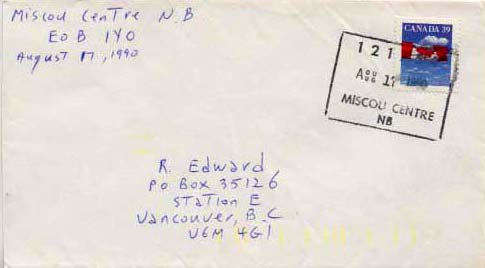 Miscou Centre N B
E0B 1Y0
August 17, 1990
CANADA 39
1 2 1
AOU
AUG 17 1990
MISCOU CENTRE
NB
R. Edward
PO Box 35126
Station E
Vancouver, B C
V6M 4G1